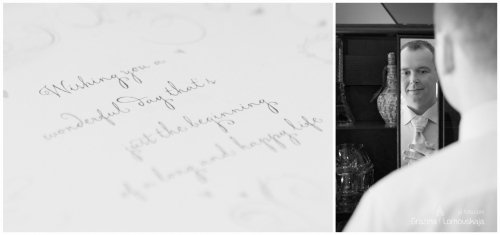 Wishing you a
wonderful Day that's
just the beginning
of a long and happy life
Cristina Lornovskaja